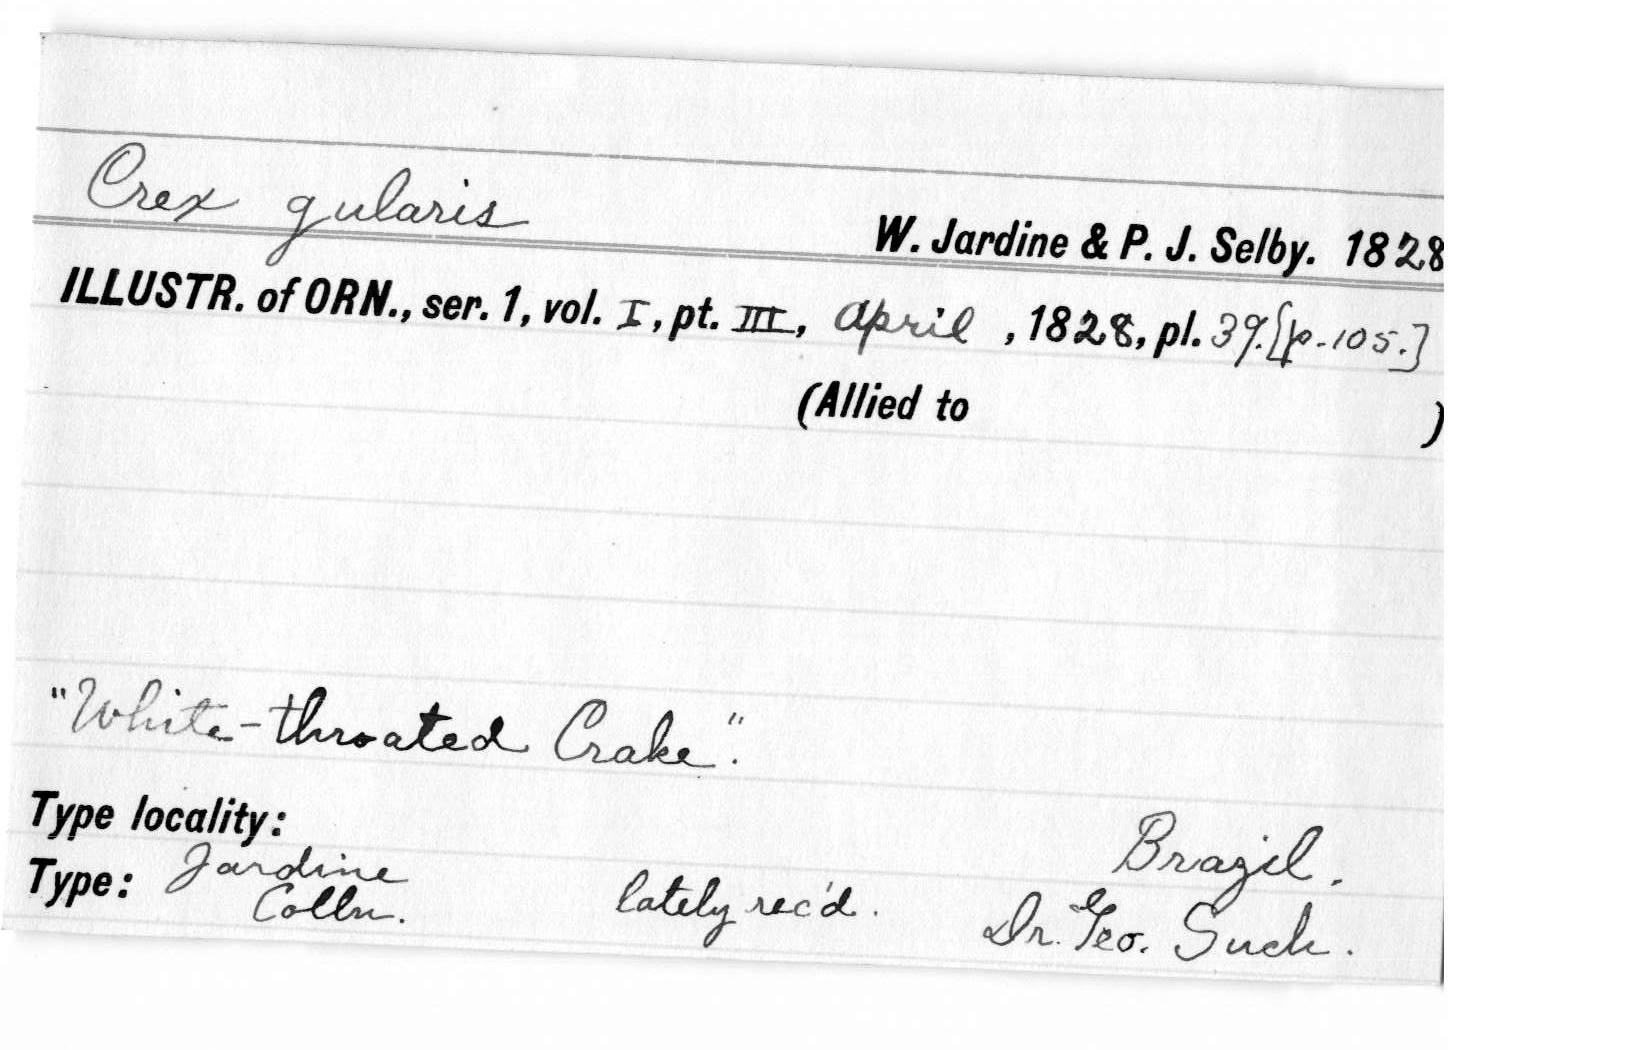 Crex gularis
W. Jardine & P. J. Selby. 1828
ILLUSTR. of ORN., ser. 1, vol. I, pt. III, april, 1828, pl. 39. [p. 105.]
(Allied to )
"White-throated Crake".
Type locality: Brazil.
Type: Jardine Colln. lately rec'd. Dr. Geo. Such.